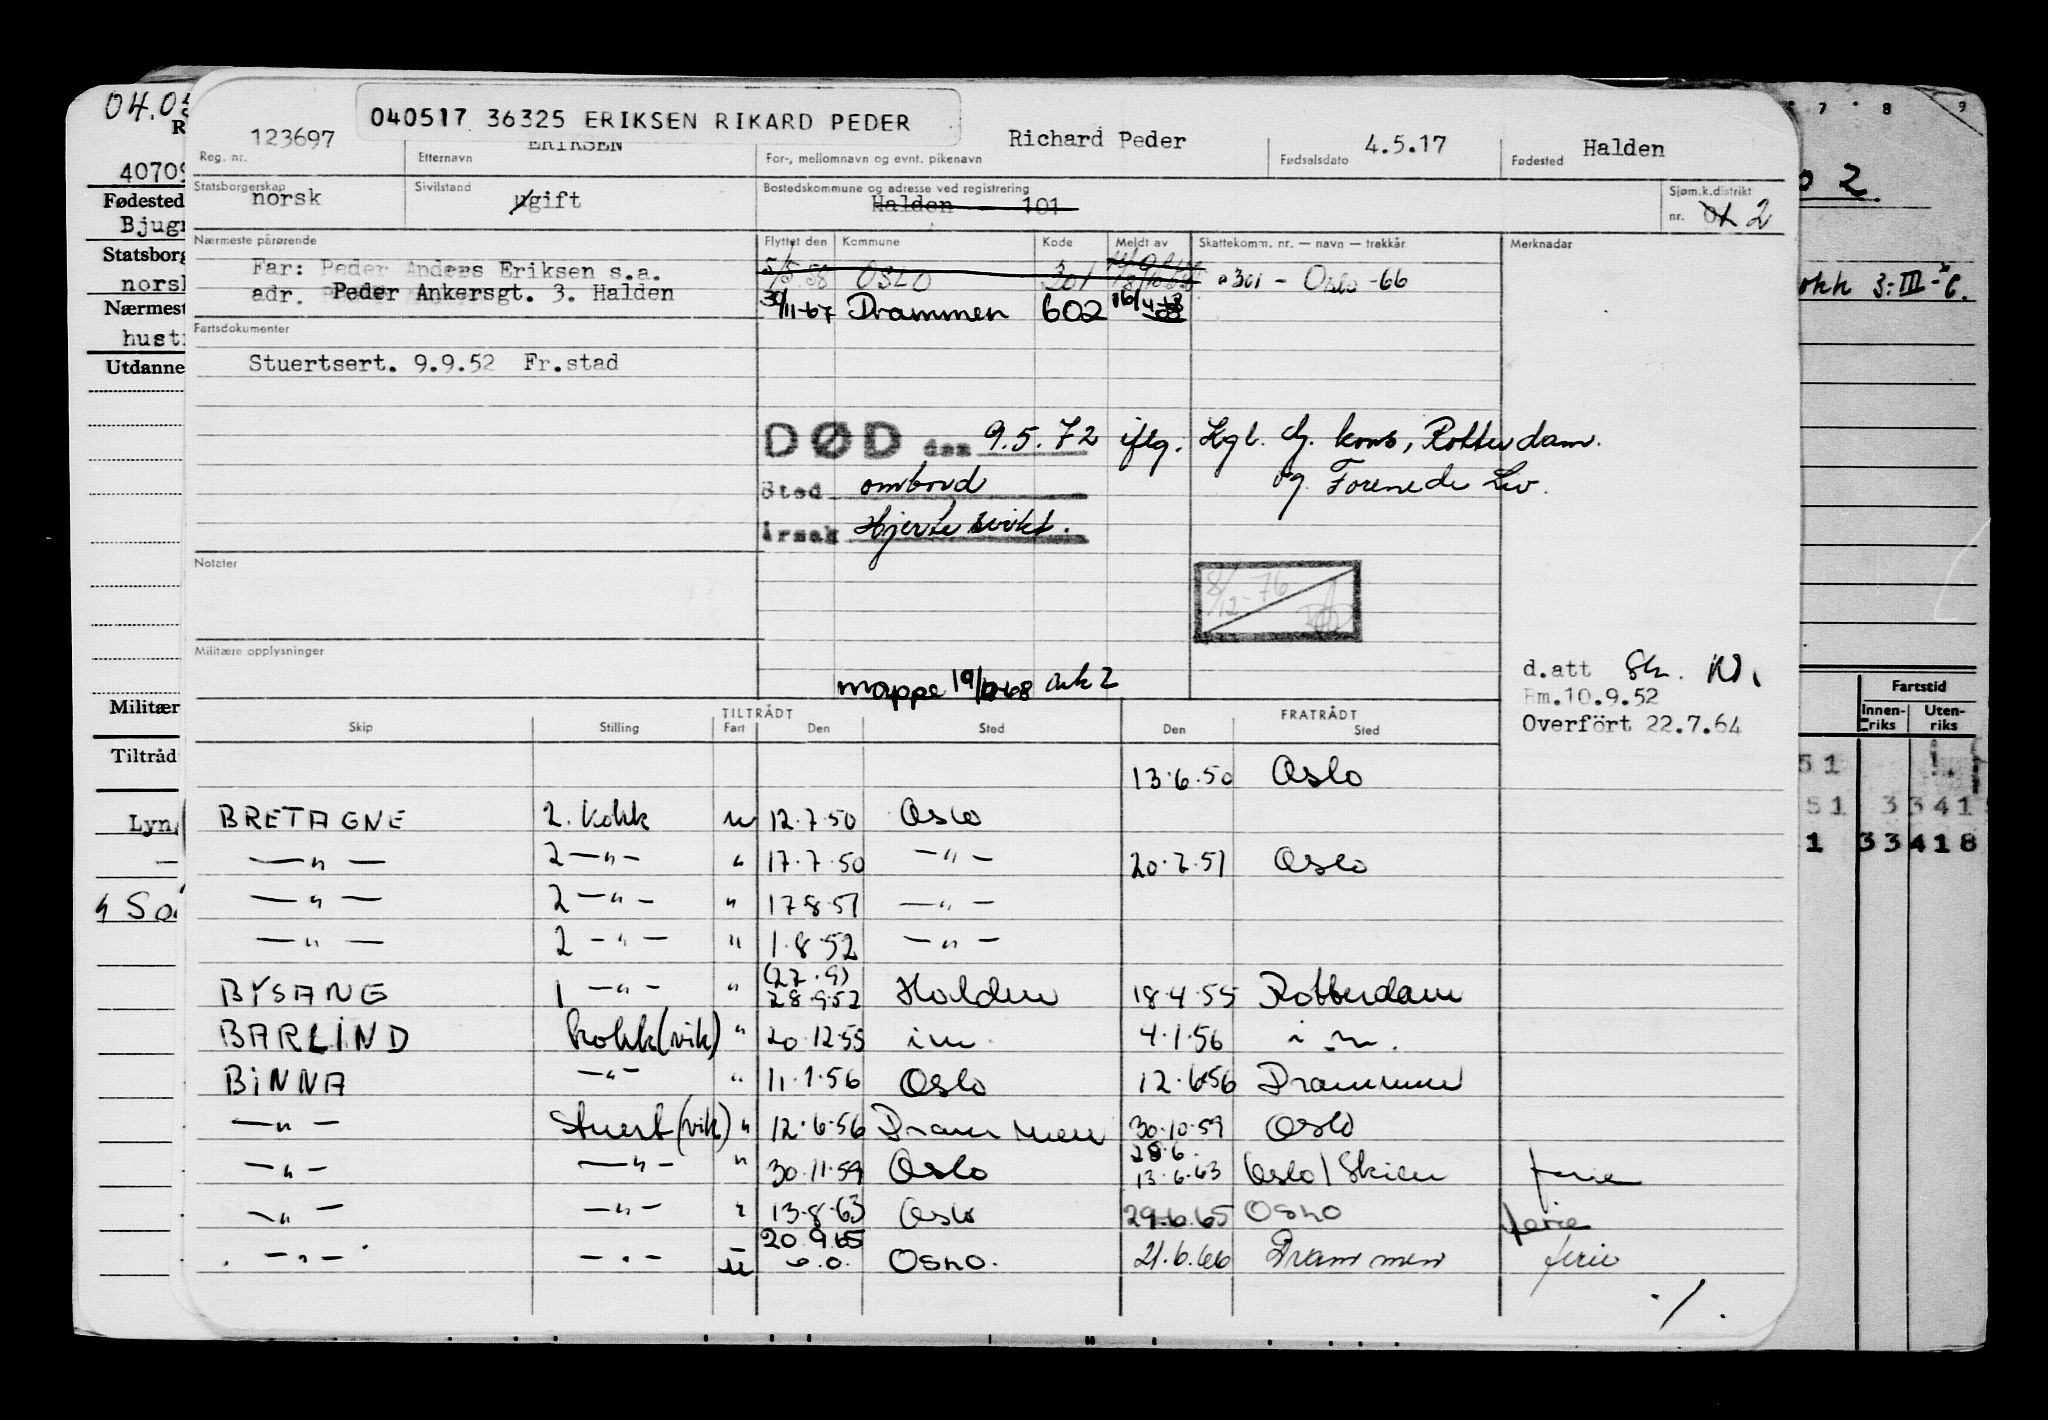 040517 36325 ERIKSEN RIKARD PEDER
123697 ERIKSEN Richard Peder 4.5.17 Halden
Reg. nr. Etternavn For-, mellomnavn og evnt. pikenavn Fødselsdato Fødested
Statsborgerskap Sivilstand Bostedskommune og adresse ved registrering Sjøm.k.distrikt
norsk ugift Halden 101 nr. 01 2
Nærmeste pårørende Flyttet den Kommune Kode Meldt av Skattekomm. nr. — navn — trekkår Merknadar
Far: Peder Anders Eriksen s.a. 5/5.58 OSLO 301 301 - Oslo -66
adr. Peder Ankersgt. 3. Halden 30/11-67 Drammen 602
Fartsdokumenter
Stuertsert. 9.9.52 Fr.stad
DØD den 9.5.72 iflg. Kgl. G. kons, Rotterdam.
Sted ombord og Forenede Liv.
Årsak Hjertesvikt.
Notater
8/12-76
Militære opplysninger
d.att
mappe 19/12-68 ark 2
Bm.10.9.52
Overfört 22.7.64
TILTRÅDT FRATRÅDT
Skip Stilling Fart Den Sted Den Sted
13.6.50 Oslo
BRETAGNE 2. kokk u 12.7.50 Oslo
—"— 2 —"— " 17.7.50 —"— 20.7.51 Oslo
—"— 2 —"— " 17.8.51 —"—
—"— 2 —"— " 1.8.52 —"—
(27.9)
BYSANG 1 —"— " 28.9.52 Halden 18.4.55 Rotterdam
BARLIND kokk (vik) " 20.12.55 i.m. 4.1.56 i.m.
BINNA —"— " 11.1.56 Oslo 12.6.56 Drammen
—"— Stuert (vik) " 12.6.56 Drammen 30.10.59 Oslo
28.6.
—"— —"— " 30.11.59 Oslo 13.6.63 Oslo/Skien ferie
—"— —"— " 13.8.63 Oslo 29.6.65 OSLO ferie
20.9.65
—"— —"— u OSLO. 21.6.66 Drammen ferie
./.
04.0
4070
Fødested
Bjug
Statsborg
nors
Nærmest
hust
Utdanne
Militær
Tiltråd
Lyn
7 8 9
2.
okk 3-III-C.
Fartstid
Innen-riks Uten-riks
51
51 3 341
1 33 418